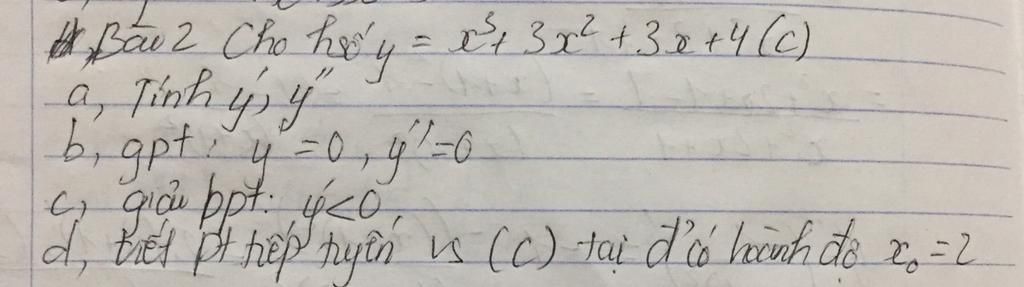 Bài 2 Cho hsố y = x³ + 3x² + 3x + 4 (C)
a, Tính y', y''
b, gpt: y' = 0, y'' = 0
c, giải bpt: y' < 0
d, viết pt tiếp tuyến vs (C) tại đ' có hoành độ x₀ = 2